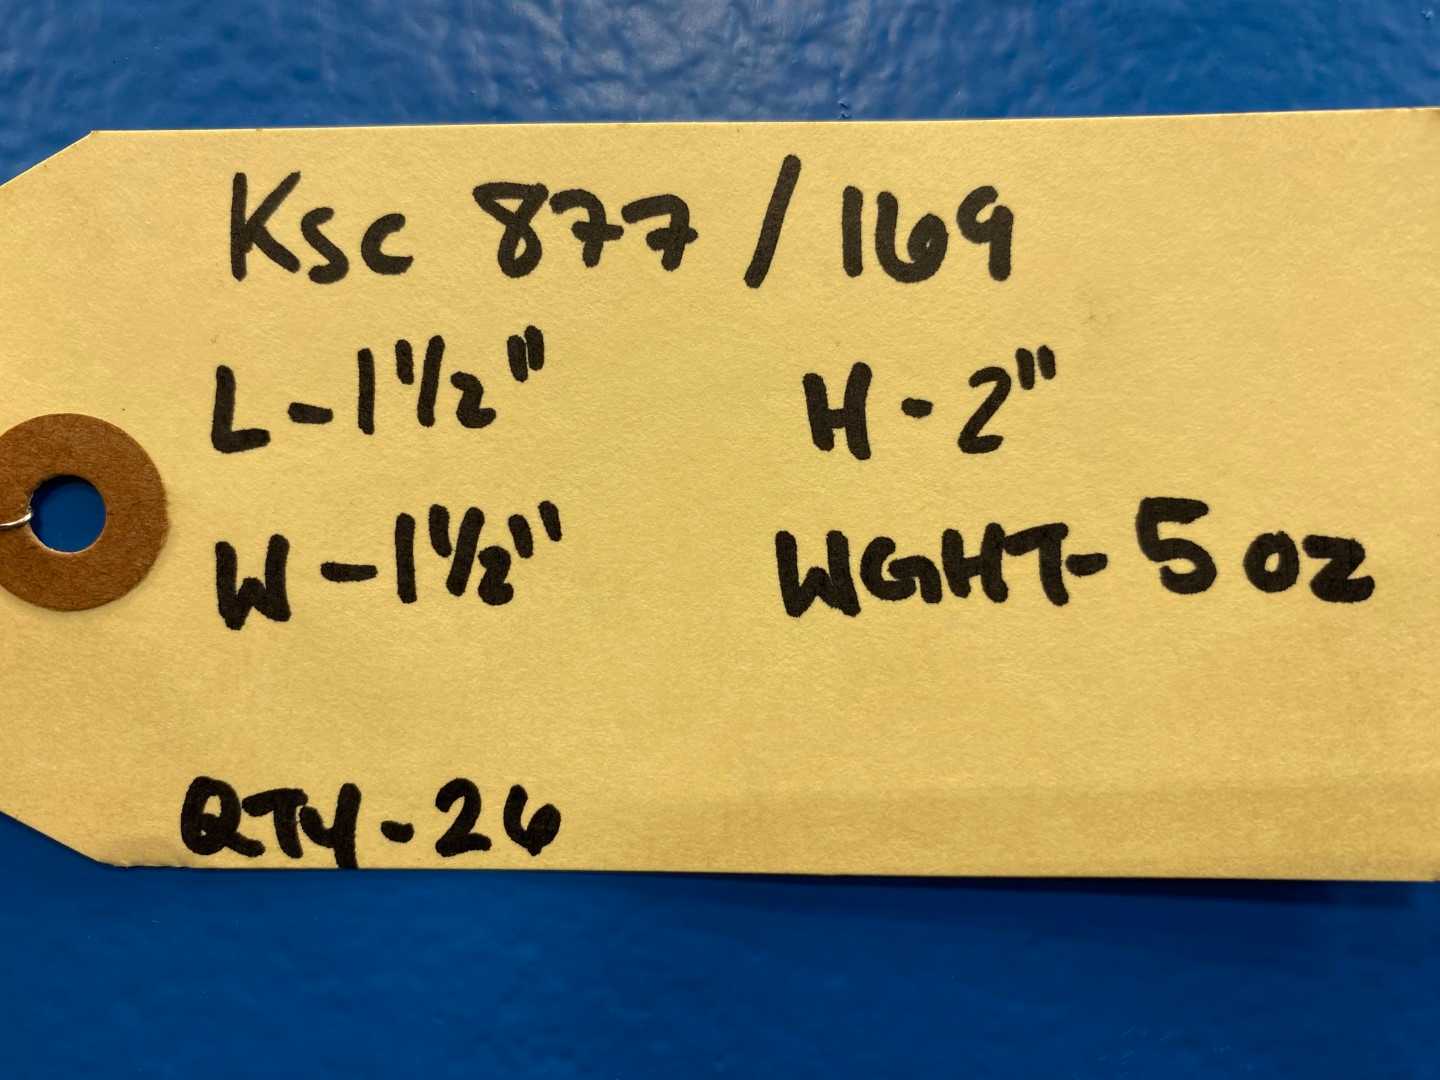 Ksc 877 / 169
L-1 1/2" H-2"
W-1 1/2" WGHT-5 oz
QTY-26